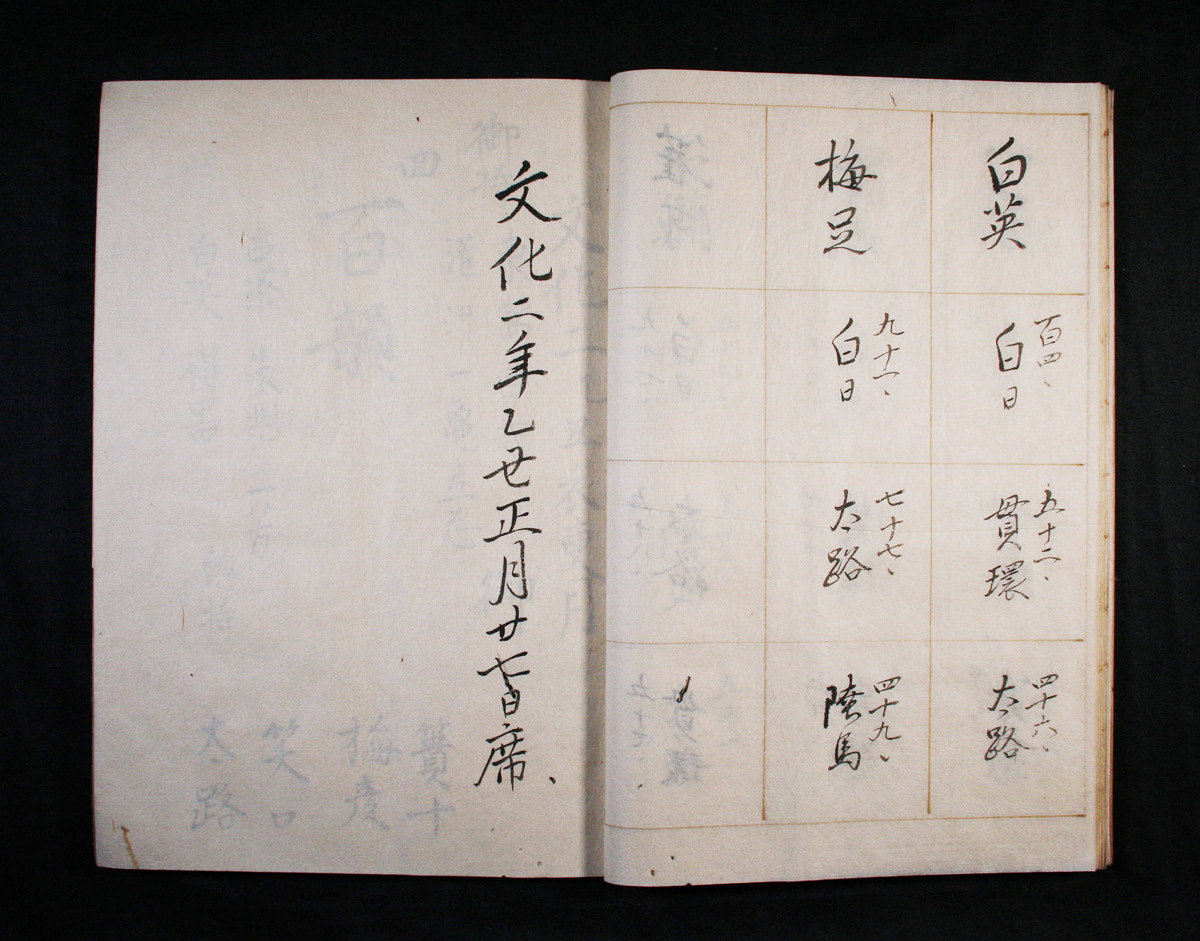 白英
百四、
白日
五十二、
貫環
四十六、
太路
梅足
九十一、
白日
七十七、
太路
四十九、
陵馬
文化二年乙丑正月廿七日席、